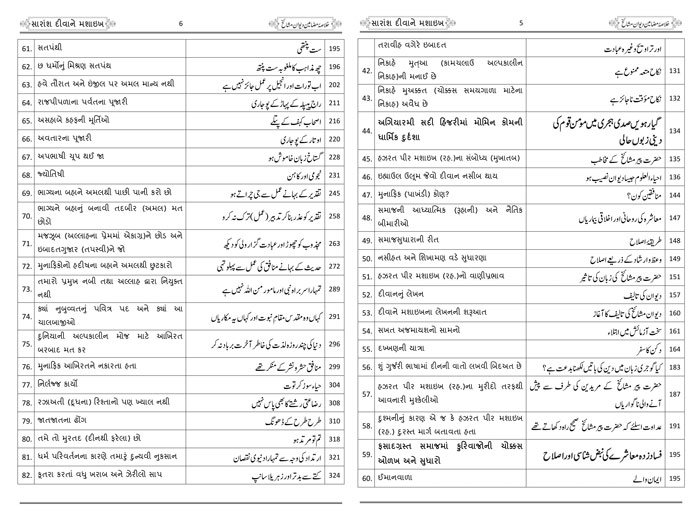 સારાંશ દીવાને મશાઇખ 5 خلاصہ مضامین دیوان مشائخ
તરાવીહ વગેરે ઇબાદત اور تراویح وغیرہ عبادت
42. નિકાહે મુતઆ (કામચલાઉ અલ્પકાલીન نکاح متعہ ممنوع ہے 131
નિકાહ)ની મનાઈ છે
43. નિકાહે મુઅક્કત (ચોક્કસ સમયગાળા માટેના نکاح مؤقت ناجائز ہے 132
નિકાહ) અવૈધ છે
44. અગિયારમી સદી હિજરીમાં મોમિન કૌમની گیارہویں صدی ہجری میں مومن قوم کی 134
ધાર્મિક દુર્દશા دینی زبوں حالی
45. હઝરત પીર મશાઇખ (રહ.)ના સંબોધ્ય (મુખાતબ) حضرت پیر مشائخ کے مخاطب 135
46. ઇહ્યાઉલ ઉલૂમ જેવો દીવાન નસીબ થાય احیاء العلوم جیسا دیوان نصیب ہو 136
47. મુનાફિક (પાખંડી) કોણ? منافقین کون؟ 142
48. સમાજની આધ્યાત્મિક (રૂહાની) અને નૈતિક معاشرہ کی روحانی اور اخلاقی بیماریاں 147
બીમારીઓ
49. સમાજસુધારાની રીત طریقۂ اصلاح 144
50. નસીહત અને શિખામણ વડે સુધારણા وعظ و ارشاد کے ذریعے اصلاح 149
51. હઝરત પીર મશાઇખ (રહ.)નો વાણીપ્રભાવ حضرت پیر مشائخ کی زبان کی تاثیر 151
52. દીવાનનું લેખન دیوان کی تالیف 157
53. દીવાને મશાઇખના લેખનની શરૂઆત دیوان مشائخ کی تالیف کا آغاز 162
54. સખત અજમાયશનો સામનો سخت آزمائش میں ابتلاء 165
55. દખ્ખણની યાત્રા دکن کا سفر 164
56. શું ગુર્જરી ભાષામાં દીનની વાતો લખવી બિદઅત છે? کیا گوجری زبان میں دین کی باتیں لکھنا بدعت ہے؟ 183
57. હઝરત પીર મશાઇખ (રહ.)ના મુરીદો તરફથી حضرت پیر مشائخ کے مریدین کی طرف سے پیش 187
આવનારી મુશ્કેલીઓ آنے والی ناگواریاں
58. દુશ્મનીનું કારણ એ જ કે હઝરત પીર મશાઇખ عداوت اسلئے کہ حضرت پیر مشائخ صحیح راہ دکھاتے تھے 191
(રહ.) દુરસ્ત માર્ગ બતાવતા હતા
59. ફસાદગ્રસ્ત સમાજમાં કુરિવાજોની ચોક્કસ فساد زدہ معاشرے کی نبض شناسی اور اصلاح 195
ઓળખ અને સુધારો
60. ઈમાનવાળા ایمان والے 195
સારાંશ દીવાને મશાઇખ 6 خلاصہ مضامین دیوان مشائخ
61. સતપંથી ست پنتھی 195
62. છ ધર્મોનું મિશ્રણ સતપંથ چھ مذاہب کا ملغوبہ ست پنتھ 196
63. હવે તૌરાત અને ઇંજીલ પર અમલ માન્ય નથી اب تورات اور انجیل پر عمل جائز نہیں ہے 202
64. રાજપીપળાના પર્વતના પૂજારી راج پیپلہ کے پہاڑ کے پوجاری 211
65. અસહાબે કહફની મૂર્તિઓ اصحاب کہف کے پتلے 216
66. અવતારના પૂજારી اوتار کے پوجاری 219
67. અપભાષી ચૂપ થઈ જા گستاخ زبان خاموش ہو 229
68. જ્યોતિષી نجومی اور کاہن 231
69. ભાગ્યના બહાને અમલથી પાછી પાની કરો છો تقدیر کے بہانے عمل سے جی چراتے ہو 245
70. ભાગ્યને બહાનું બનાવી તદબીર (અમલ) મત تقدیر کو عذر بنا کر تدبیر (عمل) ترک نہ کرو 258
છોડો
71. મજઝૂબ (અલ્લાહના પ્રેમમાં એકાગ્ર)ને છોડ અને مجذوب کو چھوڑ اور عبادت گزار ولی کو دیکھ 263
ઇબાદતગુજાર (તપસ્વી)ને જો
72. મુનાફિકોનો હદીષના બહાને અમલથી છુટકારો حدیث کے بہانے منافق کی عمل سے پہلو تہی 271
73. તમારો પ્રમુખ નબી તથા અલ્લાહ દ્વારા નિયુક્ત تمہارا سربراہ نبی اور مامور من اللہ نہیں ہے 289
નથી
74. ક્યાં નુબુવ્વતનું પવિત્ર પદ અને ક્યાં આ کہاں وہ مقدس مقام نبوت اور کہاں یہ مکاریاں 291
ચાલબાજીઓ
75. દુનિયાની અલ્પકાલીન મોજ માટે આખિરત دنیا کی چند روزہ لذت کی خاطر آخرت برباد نہ کر 296
બરબાદ મત કર
76. મુનાફિક આખિરતને નકારતા હતા منافق حشر و نشر کے منکر تھے 299
77. નિર્લજ્જ કાર્યો حیاء سوز کرتوت 304
78. રઝાઅતી (દૂધના) રિશ્તાનો પણ ખ્યાલ નથી رضاعتی رشتے کا بھی پاس نہیں 308
79. જાતજાતના ઢોંગ طرح طرح کے ڈھونگ 310
80. તમે તો મુરતદ (દીનથી ફરેલા) છો تم تو مرتد ہو 321
81. ધર્મ પરિવર્તનના કારણે તમારું દુન્યવી નુકસાન ارتداد کی وجہ سے تمہارا دنیوی نقصان 322
82. કૂતરા કરતાં વધુ ખરાબ અને ઝેરીલો સાપ کتے سے بدتر اور زہریلا سانپ 324